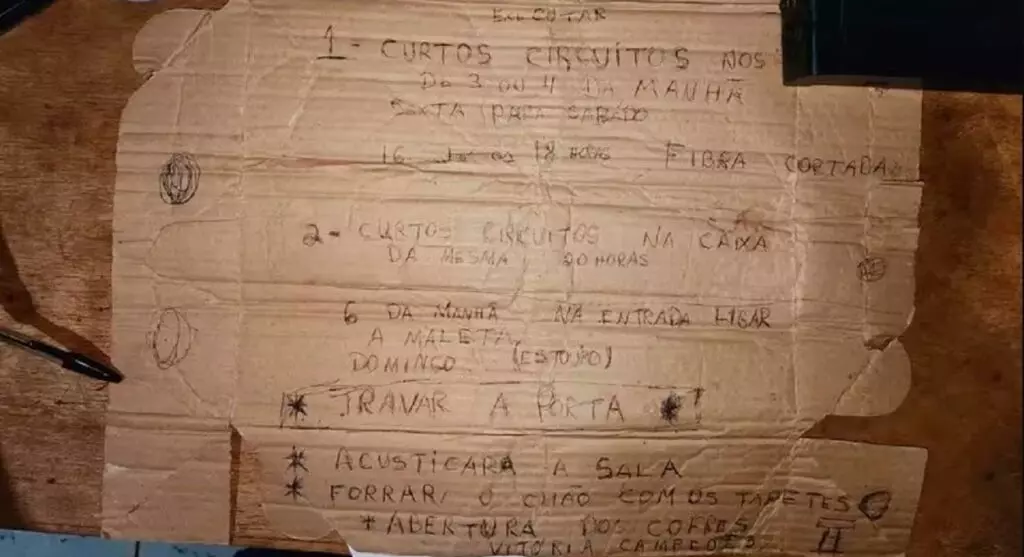 EXECUTAR
1 - CURTOS CIRCUÍTOS NOS
DO 3 OU 4 DA MANHÃ
SEXTA PARA SABADO
16 18 HORAS FIBRA CORTADA
2 - CURTOS CIRCUITOS NA CAIXA
DA MESMA 20 HORAS
6 DA MANHÃ NA ENTRADA LIGAR
A MALETA
DOMINGO (ESTOJO)
* TRAVAR A PORTA *
* ACUSTICARA A SALA
* FORRAR O CHÃO COM OS TAPETES
* ABERTURA DOS COFRES
VITÓRIA CAMPEÕES